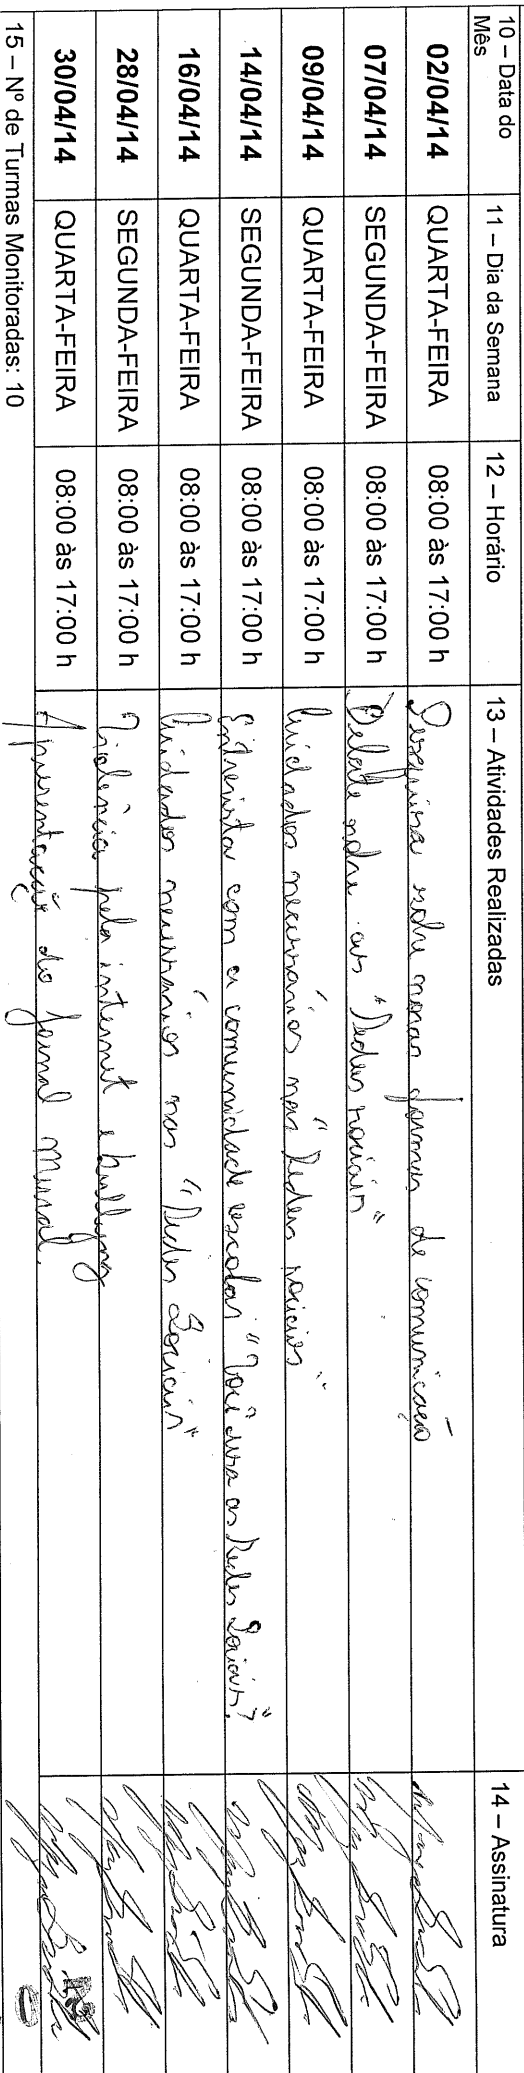 10 – Data do Mês 11 – Dia da Semana 12 – Horário 13 – Atividades Realizadas 14 – Assinatura
02/04/14 QUARTA-FEIRA 08:00 às 17:00 h Pesquisa sobre novas formas de comunicação
07/04/14 SEGUNDA-FEIRA 08:00 às 17:00 h Debate sobre as "Redes sociais"
09/04/14 QUARTA-FEIRA 08:00 às 17:00 h Cuidados necessários nas "Redes sociais"
14/04/14 SEGUNDA-FEIRA 08:00 às 17:00 h Entrevista com a comunidade escolar "Você usa as Redes Sociais?"
16/04/14 QUARTA-FEIRA 08:00 às 17:00 h Cuidados necessários nas "Redes Sociais"
28/04/14 SEGUNDA-FEIRA 08:00 às 17:00 h Violência pela internet e bullyng
30/04/14 QUARTA-FEIRA 08:00 às 17:00 h Apresentação do Jornal Mural.
15 – Nº de Turmas Monitoradas: 10